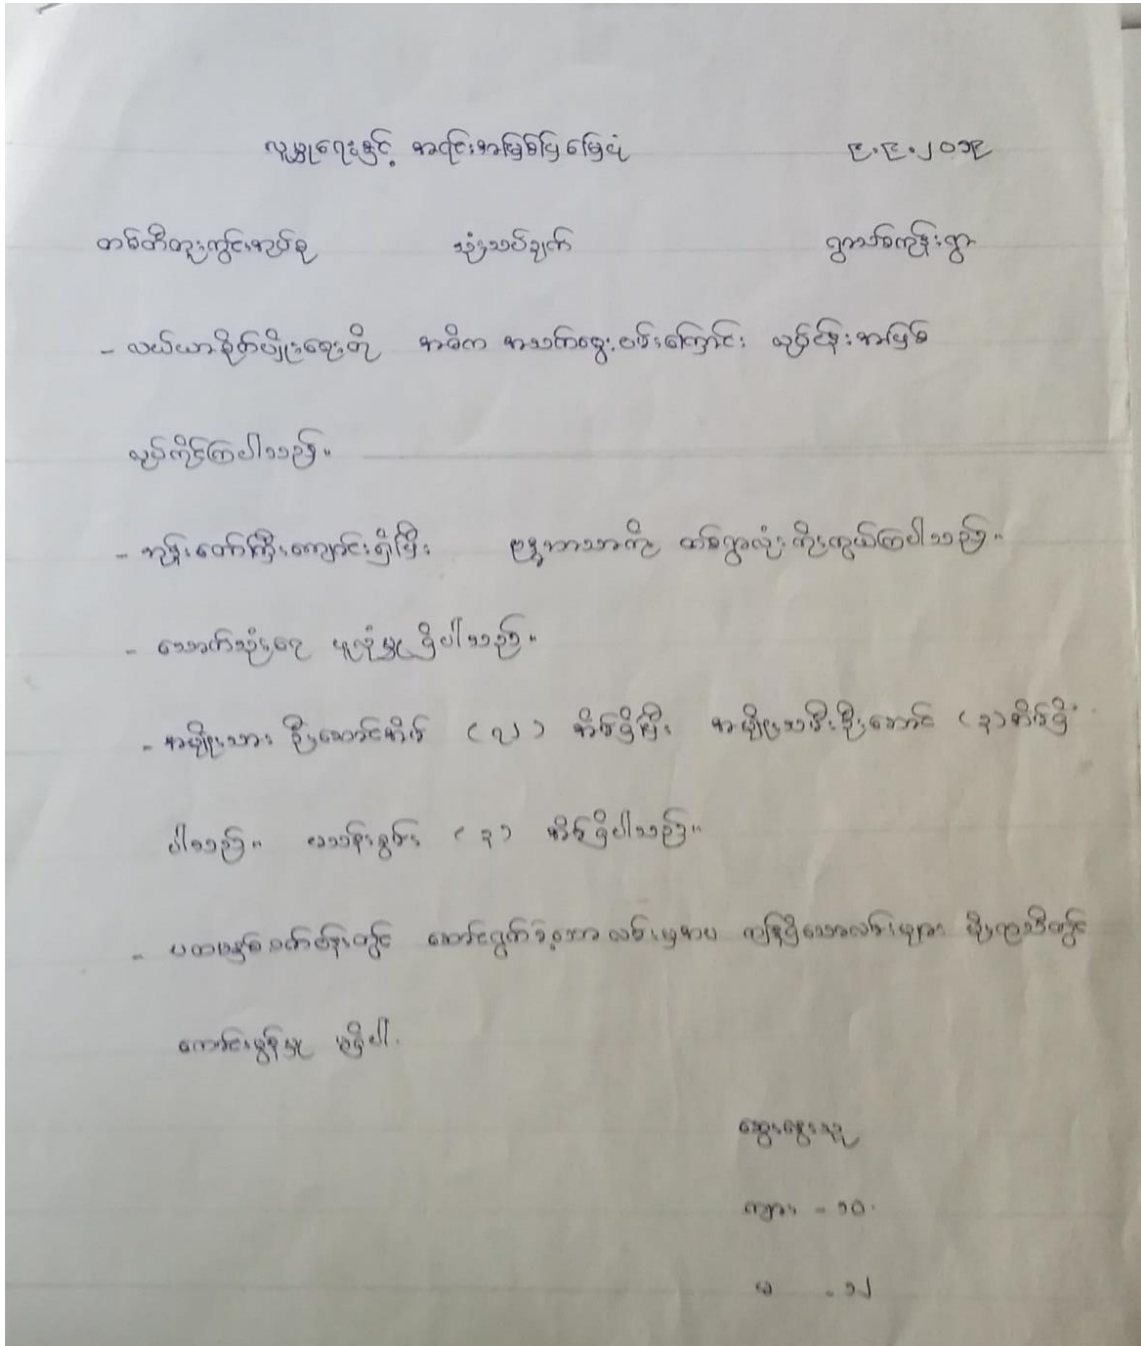 လူမှုရေးနှင့် အရင်းအမြစ်ပြမြေပုံ ၉.၉.၂၀၁၉
တစ်တီတူးကွင်းအုပ်စု သုံးသပ်ချက် ရွာသစ်ကုန်းရွာ
- လယ်ယာစိုက်ပျိုးရေးကို အဓိက အသက်မွေးဝမ်းကြောင်း လုပ်ငန်းအဖြစ်
လုပ်ကိုင်ကြပါသည်။
- ဘုန်းတော်ကြီးကျောင်းရှိပြီး ဗုဒ္ဓဘာသာကို တစ်ရွာလုံးကိုးကွယ်ကြပါသည်။
- သောက်သုံးရေ ဖူလုံမှု ရှိပါသည်။
- အမျိုးသား ဦးဆောင်အိမ် ( ၃၂ ) အိမ်ရှိပြီး အမျိုးသမီးဦးဆောင် ( ၃ ) အိမ်ရှိ
ပါသည်။ မသန်စွမ်း ( ၃ ) အိမ်ရှိပါသည်။
- ပထမနှစ်စက်ဝန်းတွင် ဆောင်ရွက်ခဲ့သောလမ်းမှအပ ကျန်ရှိသောလမ်းများ မိုးရာသီတွင်
ကောင်းမွန်မှု မရှိပါ.
ဆွေးနွေးသူ
ကျား - ၁၀
မ - ၁၂